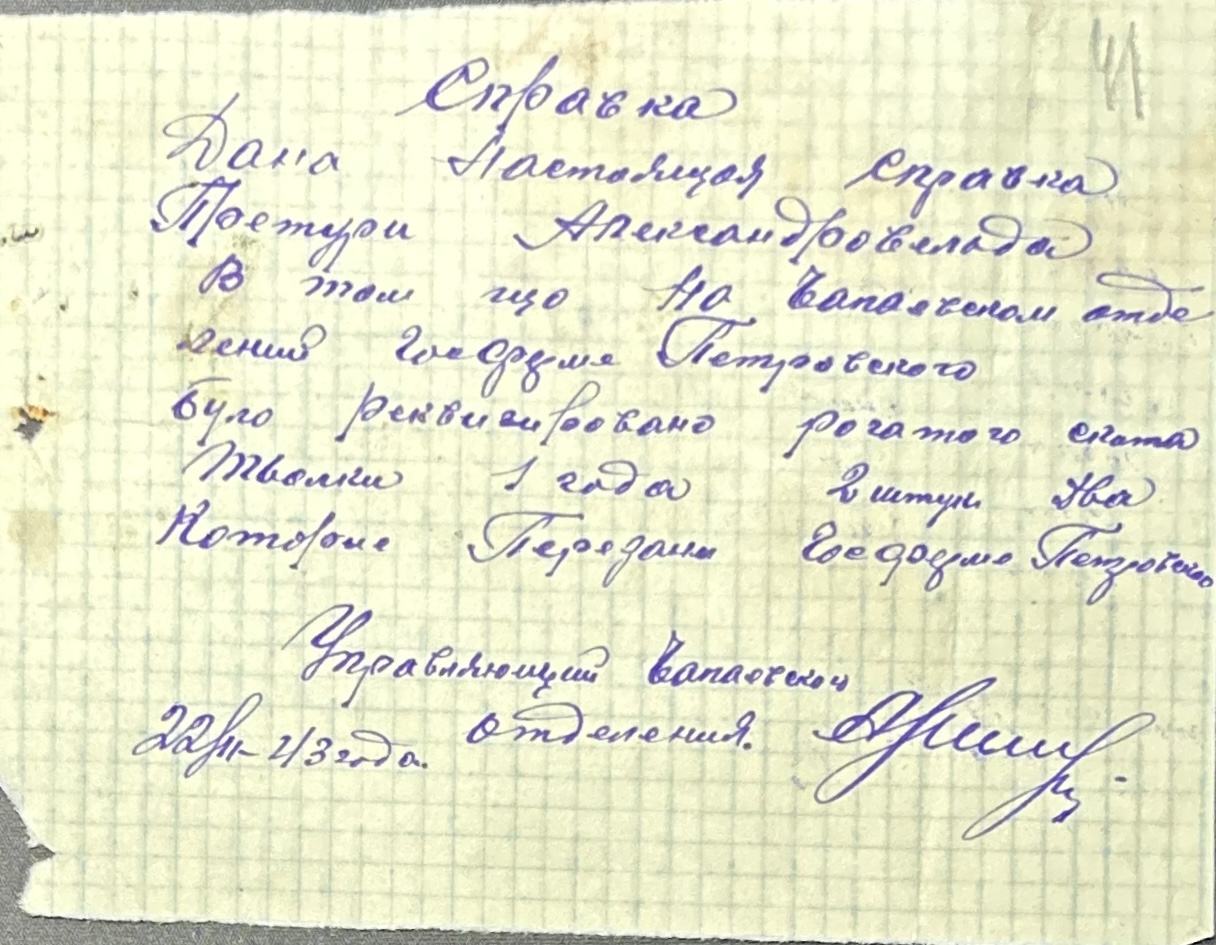 41
Справка
Дана Настоящая Справка
Претури Александровслода
В том що На Чапаевском отде
лений Госфдрме Петровского
Було реквизировано рогатого скота
Тьолки 1 года 2 штук Два
Которые Передани Госфдрме Петровского
Управляющий Чапаевской
22/II-43 года. отделения.